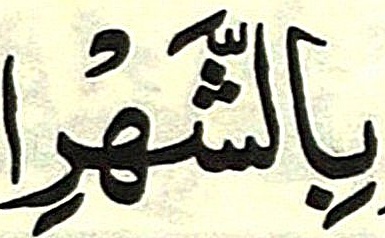 بِالشَّهْرِ ا